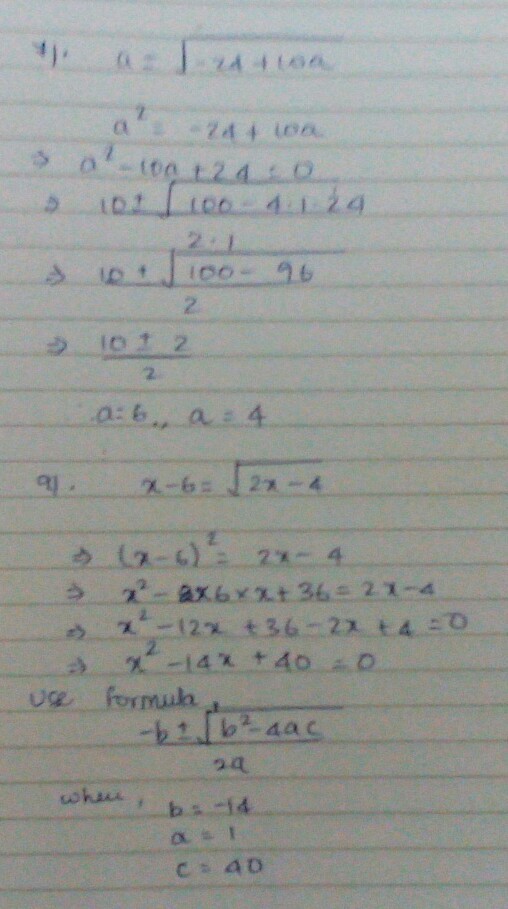 7). a = √-24 + 10a
a² = -24 + 10a
⇒ a² - 10a + 24 = 0
⇒ 10 ± √100 - 4·1·24
2·1
⇒ 10 ± √100 - 96
2
⇒ 10 ± 2
2
a = 6,, a = 4
9). x - 6 = √2x - 4
⇒ (x - 6)² = 2x - 4
⇒ x² - 2×6×x + 36 = 2x - 4
⇒ x² - 12x + 36 - 2x + 4 = 0
⇒ x² - 14x + 40 = 0
Use formula,
-b ± √b² - 4ac
2a
when, b = -14
a = 1
c = 40